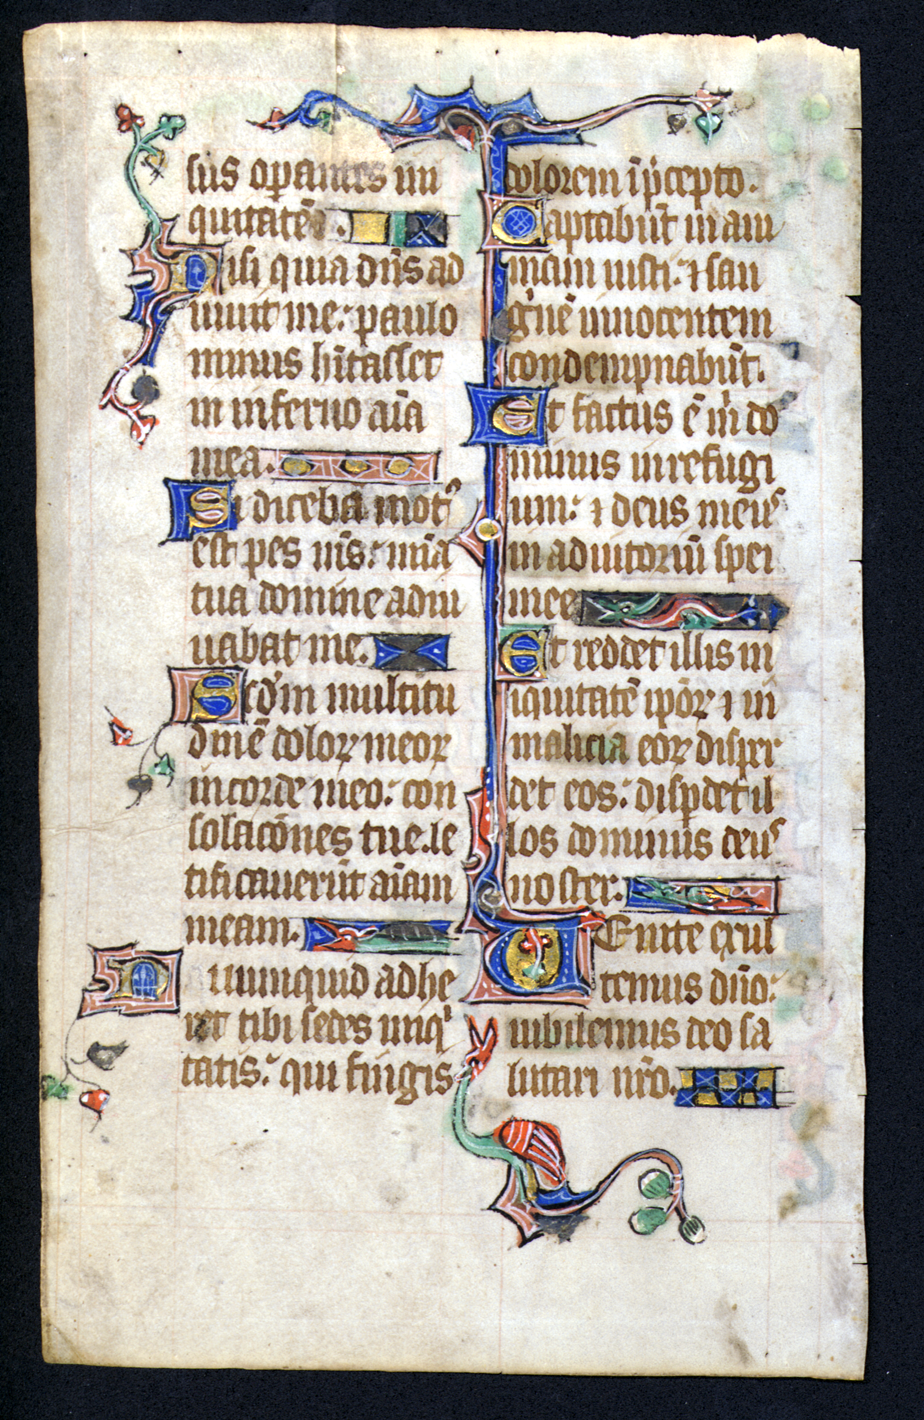 sus opantes in
iquitatē.
Nisi quia dn̄s ad
iuuit me: paulo
minus hītasset
in inferno aīa
mea.
Si diceba mot⁹
est pes ms̄: mīa
tua domine adiu
uabat me.
Scd'm multitu
dinē doloꝝ meoꝝ
in corde meo: con
solacōnes tue le
tificauerūt aīam
meam.
Numquid adhe
ret tibi sedes iniqⁱ
tatis: qui fingis
dolorem ī p̄cepto.
Captabūt in ani
mam iusti: ⁊ san
gⁱnē innocentem
condempnabūt.
Et factus ē mⁱ do
minus in refugi
um: ⁊ deus meus
in adiutoriū spei
mee.
Et reddet illis in
iquitatē ipoꝝ ⁊ in
malicia eoꝝ disper
det eos: dispdet il
los dominus deus
noster.
Uenite exul
temus dn̄o:
iubilemus deo sa
lutari nr̄o.